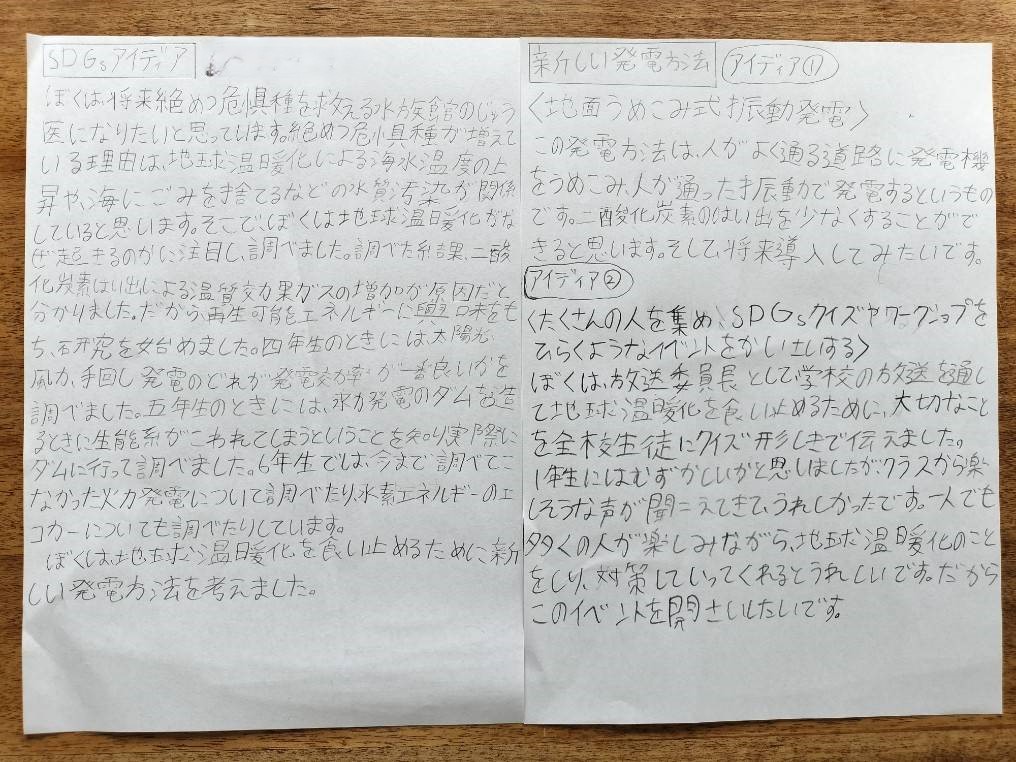 SDGsアイディア
ぼくは、将来絶めつ危惧種を救える水族館のじゅう
医になりたいと思っています。絶めつ危惧種が増えて
いる理由は、地球温暖化による海水温度の上
昇や、海にごみを捨てるなどの水質汚染が関係
していると思います。そこで、ぼくは地球温暖化がな
ぜ起きるのかに注目し、調べました。調べた結果、二酸
化炭素はい出による温室効果ガスの増加が原因だと
分かりました。だから、再生可能エネルギーに興味をも
ち、研究を始めました。四年生のときには、太陽光、
風力、手回し発電のどれが発電効率が一番良いかを
調べました。五年生のときには、水力発電のダムを造
るときに生能系がこわれてしまうということを知り実際に
ダムに行って調べました。6年生では、今まで調べてこ
なかった火力発電について調べたり水素エネルギーのエ
コカーについても調べたりしています。
ぼくは、地球温暖化を食い止めるために、新
しい発電方法を考えました。
新しい発電方法 アイディア①
〈地面うめこみ式振動発電〉
この発電方法は、人がよく通る道路に発電機
をうめこみ、人が通った振動で発電するというもの
です。二酸化炭素のはい出を少なくすることがで
きると思います。そして、将来導入してみたいです。
アイディア②
〈たくさんの人を集め、SDGsクイズやワークショップを
ひらくようなイベントをかいさいする〉
ぼくは、放送委員長として学校の放送を通し
て地球温暖化を食い止めるために、大切なこと
を全校生徒にクイズ形しきで伝えました。
1年生にはむずかしいかと思いましたがクラスから楽
しそうな声が聞こえてきて、うれしかったです。一人でも
多くの人が楽しみながら、地球温暖化のこと
をしり、対策していってくれるとうれしいです。だから
このイベントを開さいしたいです。